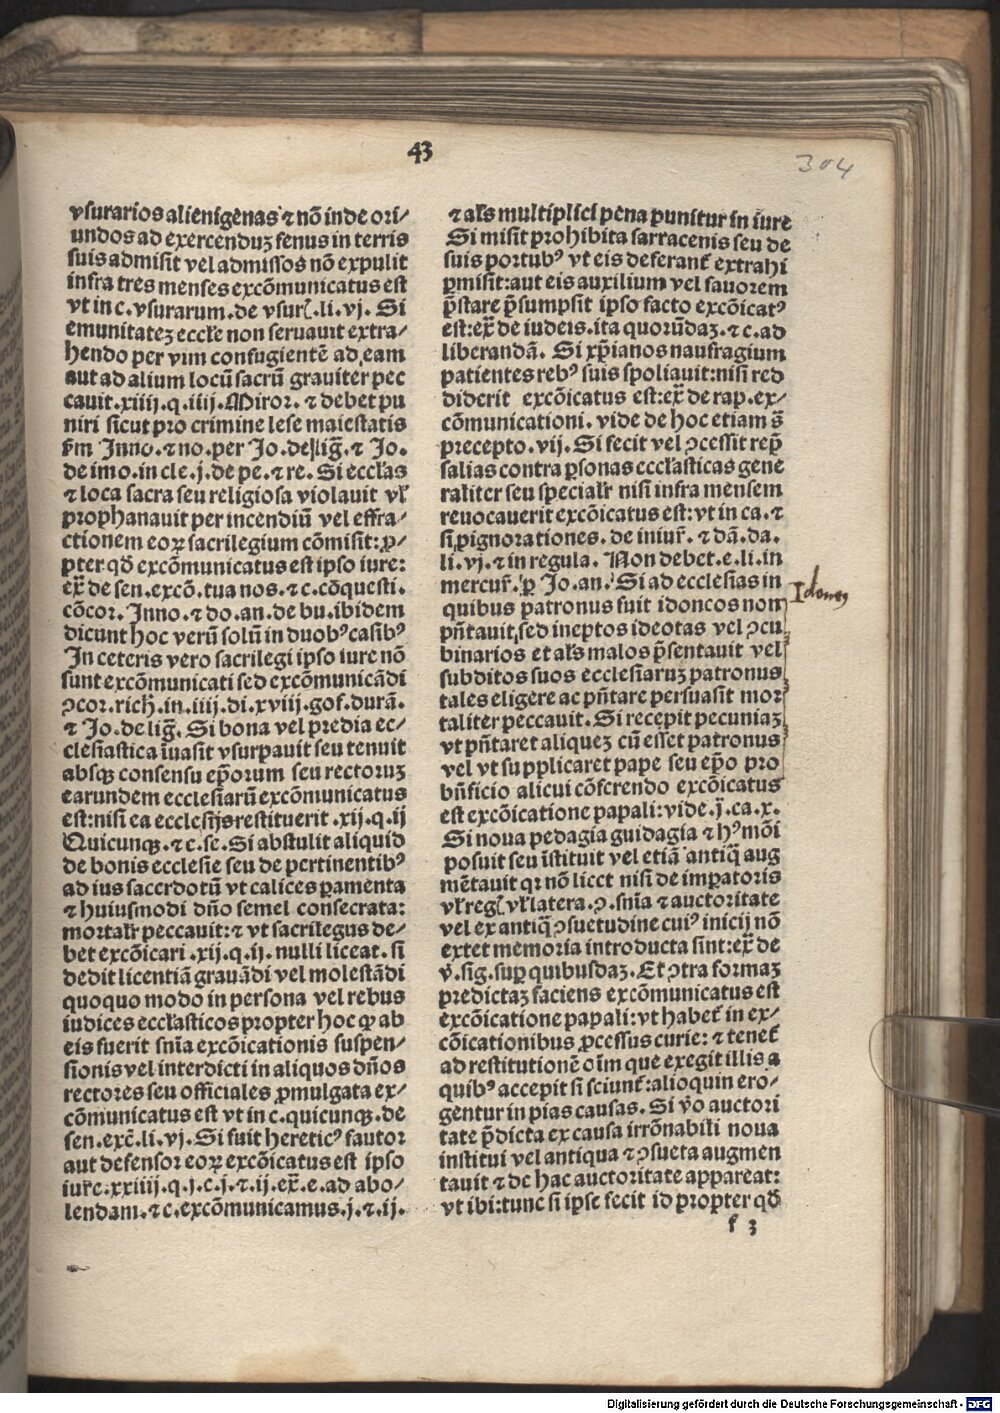 43
304
vsurarios alienigenas ⁊ nō inde ori/
undos ad exercenduꝫ fenus in terris
suis admisit vel admissos nō expulit
infra tres menses excōmunicatus est
vt in c. vsurarum. de vsur. li. vj. Si
emunitateꝫ eccl̄e non seruauit extra/
hendo per vim confugientē ad eam
aut ad alium locū sacrū grauiter pec
cauit. xiiij. q. iiij. Miror. ⁊ debet pu
niri sicut pro crimine lese maiestatis
fm Inno. ⁊ no. per Jo. de liḡ. ⁊ Jo.
de imo. in cle. j. de pe. ⁊ re. Si eccl̄as
⁊ loca sacra seu religiosa violauit vl̄
prophanauit per incendiū vel effra/
ctionem eoꝝ sacrilegium cōmisit: ꝓ/
pter qđ excōmunicatus est ipso iure:
ex̄ de sen. excō. tua nos. ⁊ c. cōquesti.
cōcor. Inno. ⁊ do. an. de bu. ibidem
dicunt hoc verū solū in duobꝰ casibꝰ
In ceteris vero sacrilegi ipso iure nō
sunt excōmunicati sed excōmunicādi
ꝯcor. rich̄. in. iiij. di. xviij. gof. durā.
⁊ Jo. de liḡ. Si bona vel predia ec/
clesiastica īuasit vsurpauit seu tenuit
absqꝫ consensu ep̄orum seu rectoruꝫ
earundem ecclesiarū excōmunicatus
est: nisi ea ecclesijs restituerit. xij. q. ij
Quicunqꝫ. ⁊ c. se. Si abstulit aliquid
de bonis ecclesie seu de pertinentibꝰ
ad ius sacerdotū vt calices ꝑamenta
⁊ huiusmodi dn̄o semel consecrata:
mortalr̄ peccauit: ⁊ vt sacrilegus de/
bet excōicari. xij. q. ij. nulli liceat. si
dedit licentiā grauādi vel molestādi
quoquo modo in persona vel rebus
iudices eccl̄asticos propter hoc ꝙ ab
eis fuerit sn̄ia excōicationis suspen/
sionis vel interdicti in aliquos dn̄os
rectores seu officiales ꝓmulgata ex/
cōmunicatus est vt in c. quicunqꝫ. de
sen. exc̄. li. vj. Si fuit hereticꝰ fautor
aut defensor eoꝝ excōicatus est ipso
iure. xxiiij. q. j. c. j. ⁊. ij. ex̄. e. ad abo/
lendam. ⁊ c. excōmunicamus. j. ⁊. ij.
⁊ al̄s multiplici pena punitur in iure
Si misit prohibita sarracenis seu de
suis portubꝰ vt eis deferant̄ extrahi
ꝑmisit: aut eis auxilium vel fauorem
p̄stare p̄sumpsit ipso facto excōicatꝰ
est: ex̄ de iudeis. ita quorūdaꝫ. ⁊ c. ad
liberandā. Si xp̄ianos naufragium
patientes rebꝰ suis spoliauit: nisi red
diderit excōicatus est: ex̄ de rap. ex/
cōmunicationi. vide de hoc etiam s̄
precepto. vij. Si fecit vel ꝯcessit rep̄
salias contra ꝑsonas eccl̄asticas gene
raliter seu specialr̄ nisi infra mensem
reuocauerit excōicatus est: vt in ca. ⁊
si pignorationes. de iniur̄. ⁊ dā. da.
li. vj. ⁊ in regula. Non debet. e. li. in
mercur̄. ꝑ Jo. an. Si ad ecclesias in
quibus patronus fuit idoneos non
pn̄tauit, sed ineptos ideotas vel ꝯcu
binarios et al̄s malos p̄sentauit vel
subditos suos ecclesiaruꝫ patronus
tales eligere ac pn̄tare persuasit mor
taliter peccauit. Si recepit pecuniaꝫ
vt pn̄taret aliqueꝫ cū esset patronus
vel vt supplicaret pape seu ep̄o pro
bn̄ficio alicui cōferendo excōicatus
est excōicatione papali: vide. j̄. ca. x.
Si noua pedagia guidagia ⁊ hꝰmōi
posuit seu īstituit vel etiā antiq̄ aug
mētauit qꝛ nō licet nisi de imꝑatoris
vl̄ reg. vl̄ latera. ꝯ. sn̄ia ⁊ auctoritate
vel ex antiq̄ ꝯsuetudine cuiꝰ inicij nō
extet memoria introducta sint: ex̄ de
v̄. sig. suꝑ quibusdaꝫ. Et ꝯtra formaꝫ
predictaꝫ faciens excōmunicatus est
excōicatione papali: vt habet̄ in ex/
cōicationibus ꝓcessus curie: ⁊ tenet̄
ad restitutionē oīm que exegit illis a
quibꝰ accepit si sciunt̄: alioquin ero/
gentur in pias causas. Si v̄o auctori
tate p̄dicta ex causa irrōnabili noua
institui vel antiqua ⁊ ꝯsueta augmen
tauit ⁊ de hac auctoritate appareat:
vt ibi: tunc si ipse fecit id propter qđ
f 3
Idoneos
Digitalisierung gefördert durch die Deutsche Forschungsgemeinschaft - DFG